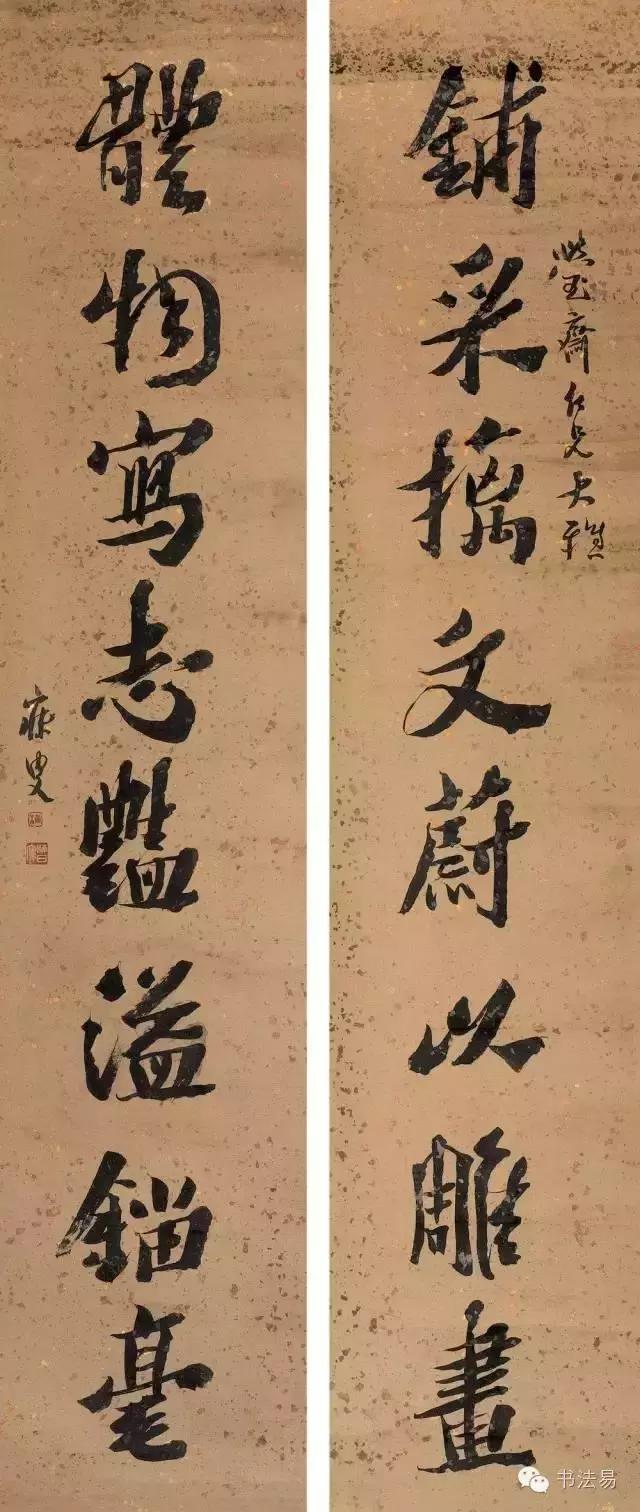 鋪采摛文蔚以雕畫
玉齋仁兄大雅
體物寫志豔溢錙毫
寐叟
书法易